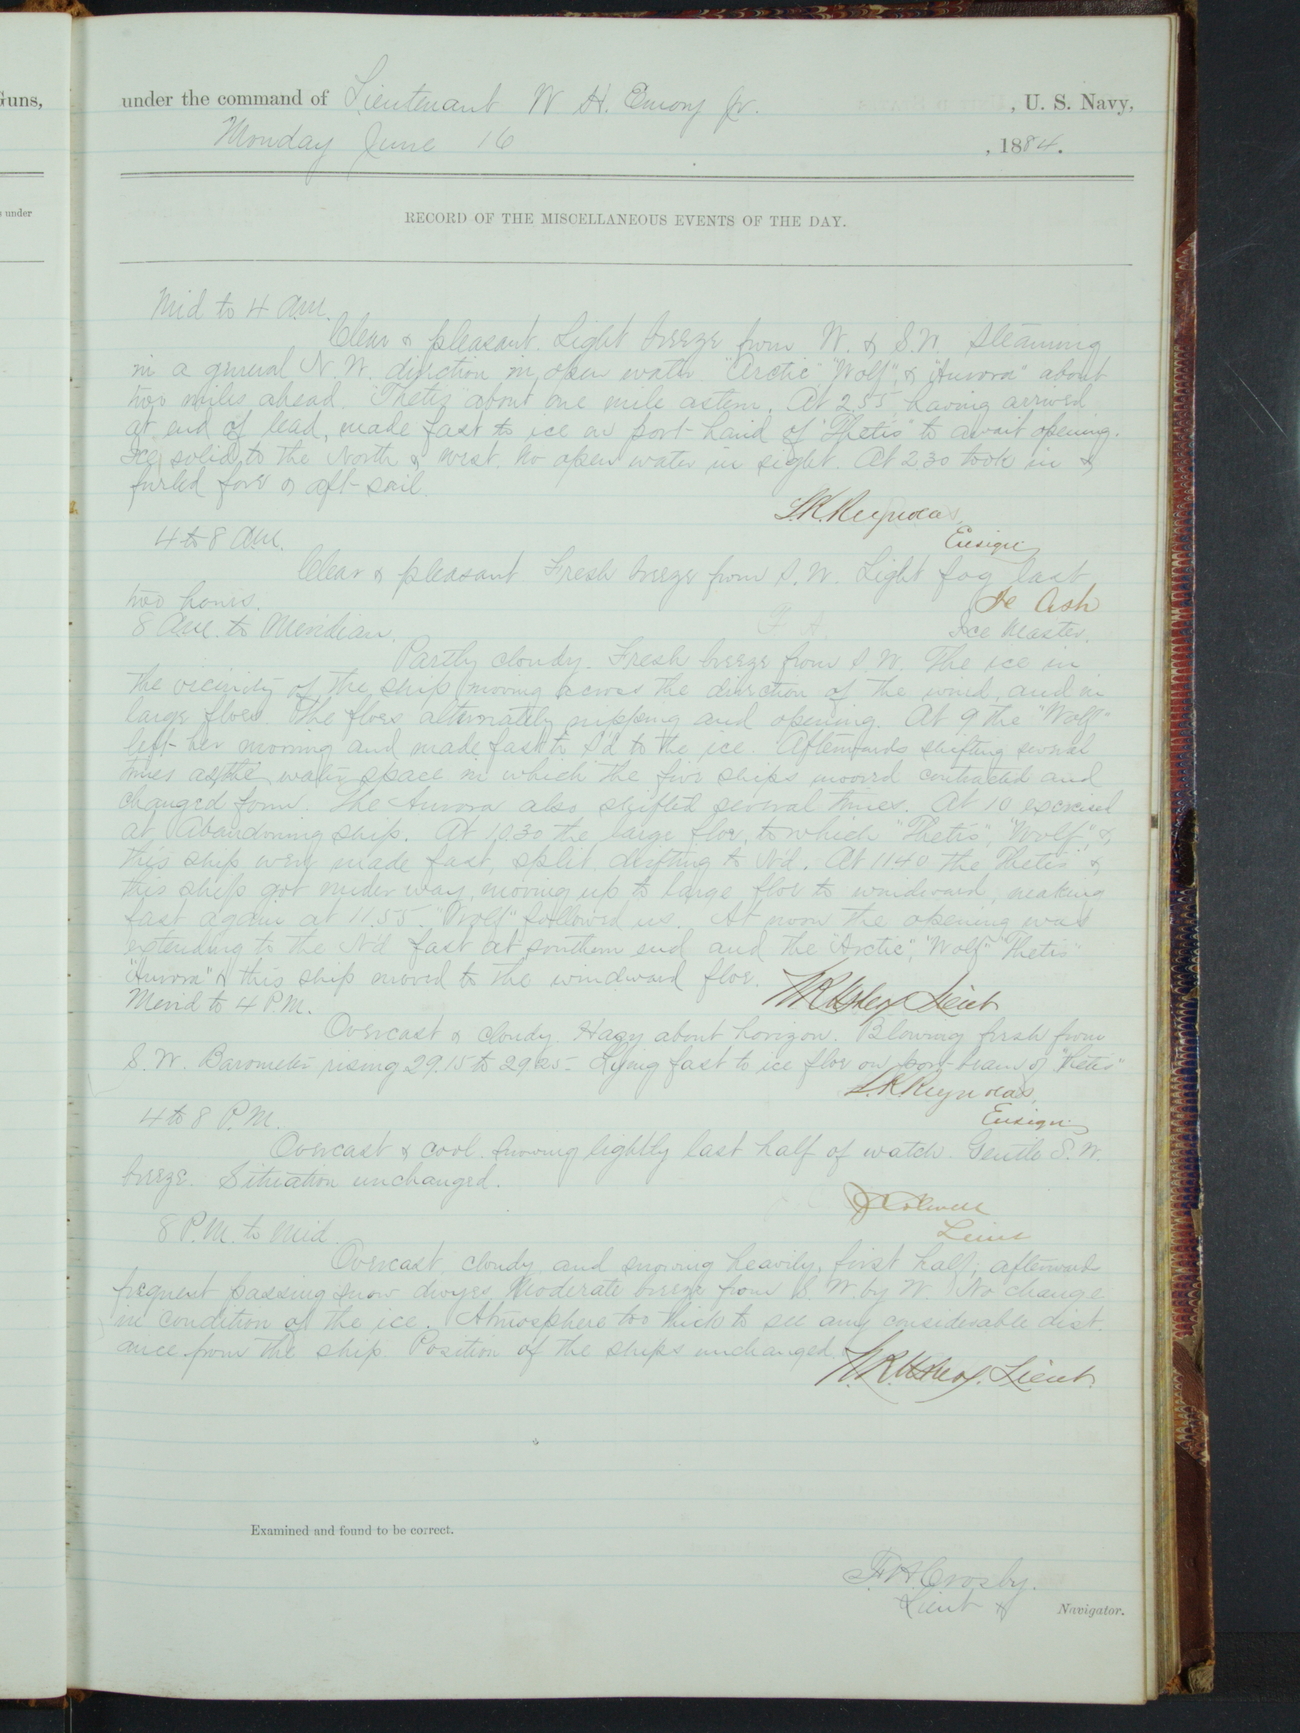 Guns,
under the command of Lieutenant W H. Emory Jr. , U. S. Navy,
Monday June 16 , 1884.
s under
RECORD OF THE MISCELLANEOUS EVENTS OF THE DAY.
Mid to 4 A.M.
Clear & pleasant. Light breeze from W. & S.W. Steaming
in a general N.W. direction in open water. "Arctic" "Wolf", & "Aurora" about
two miles ahead. Thetis about one mile astern. At 2.55 having arrived
at end of lead, made fast to ice on port-hand of "Thetis" to await opening.
Ice solid to the North & West. No open water in sight. At 2.30 took in &
furled fore & aft-sail.
S.K. Reynolds,
Ensign
4 to 8 A.M.
Clear & pleasant Fresh breeze from S.W. Light fog last
two hours.
Ash
Ice Master.
8 A.M. to Meridian.
Partly cloudy. Fresh breeze from S.W. The ice in
the vicinity of the ship moving across the direction of the wind, and in
large floes. The floes alternately nipping and opening. At 9 the "Wolf"
left her mooring and made fast to S'd to the ice. Afterwards shifting several
times as the water space in which the five ships moored contracted and
changed form. The Aurora also shifted several times. At 10 exercised
at Abandoning ship. At 10.30 the large floe, to which "Thetis", "Wolf", &
this ship were made fast, split, drifting to N'd. At 11.40 the "Thetis" &
this ship got under way, moving up to large floe to windward, making
fast again at 11.55. "Wolf" followed us. At noon the opening was
extending to the N'd fast at southern end and the "Arctic", "Wolf" "Thetis"
"Aurora" & this ship moved to the windward floe.
Lieut
Merid to 4 P.M.
Overcast & cloudy. Hazy about horizon. Blowing fresh from
S.W. Barometer rising 29.15 to 29.25. Lying fast to ice floe on port-beam of "Thetis"
S.K. Reynolds,
Ensign
4 to 8 P.M.
Overcast & cool. Snowing lightly last half of watch. Gentle S.W.
breeze. Situation unchanged.
J C Colwell
Lieut
8 P.M. to Mid.
Overcast, cloudy, and snowing heavily, first half; afterward
frequent passing snow Moderate breeze from S W. by W. No change
in condition of the ice. Atmosphere too thick to see any considerable dist.
ance from the ship. Position of the ships unchanged.
Lieut.
Examined and found to be correct.
F.H. Crosby.
Lieut & Navigator.